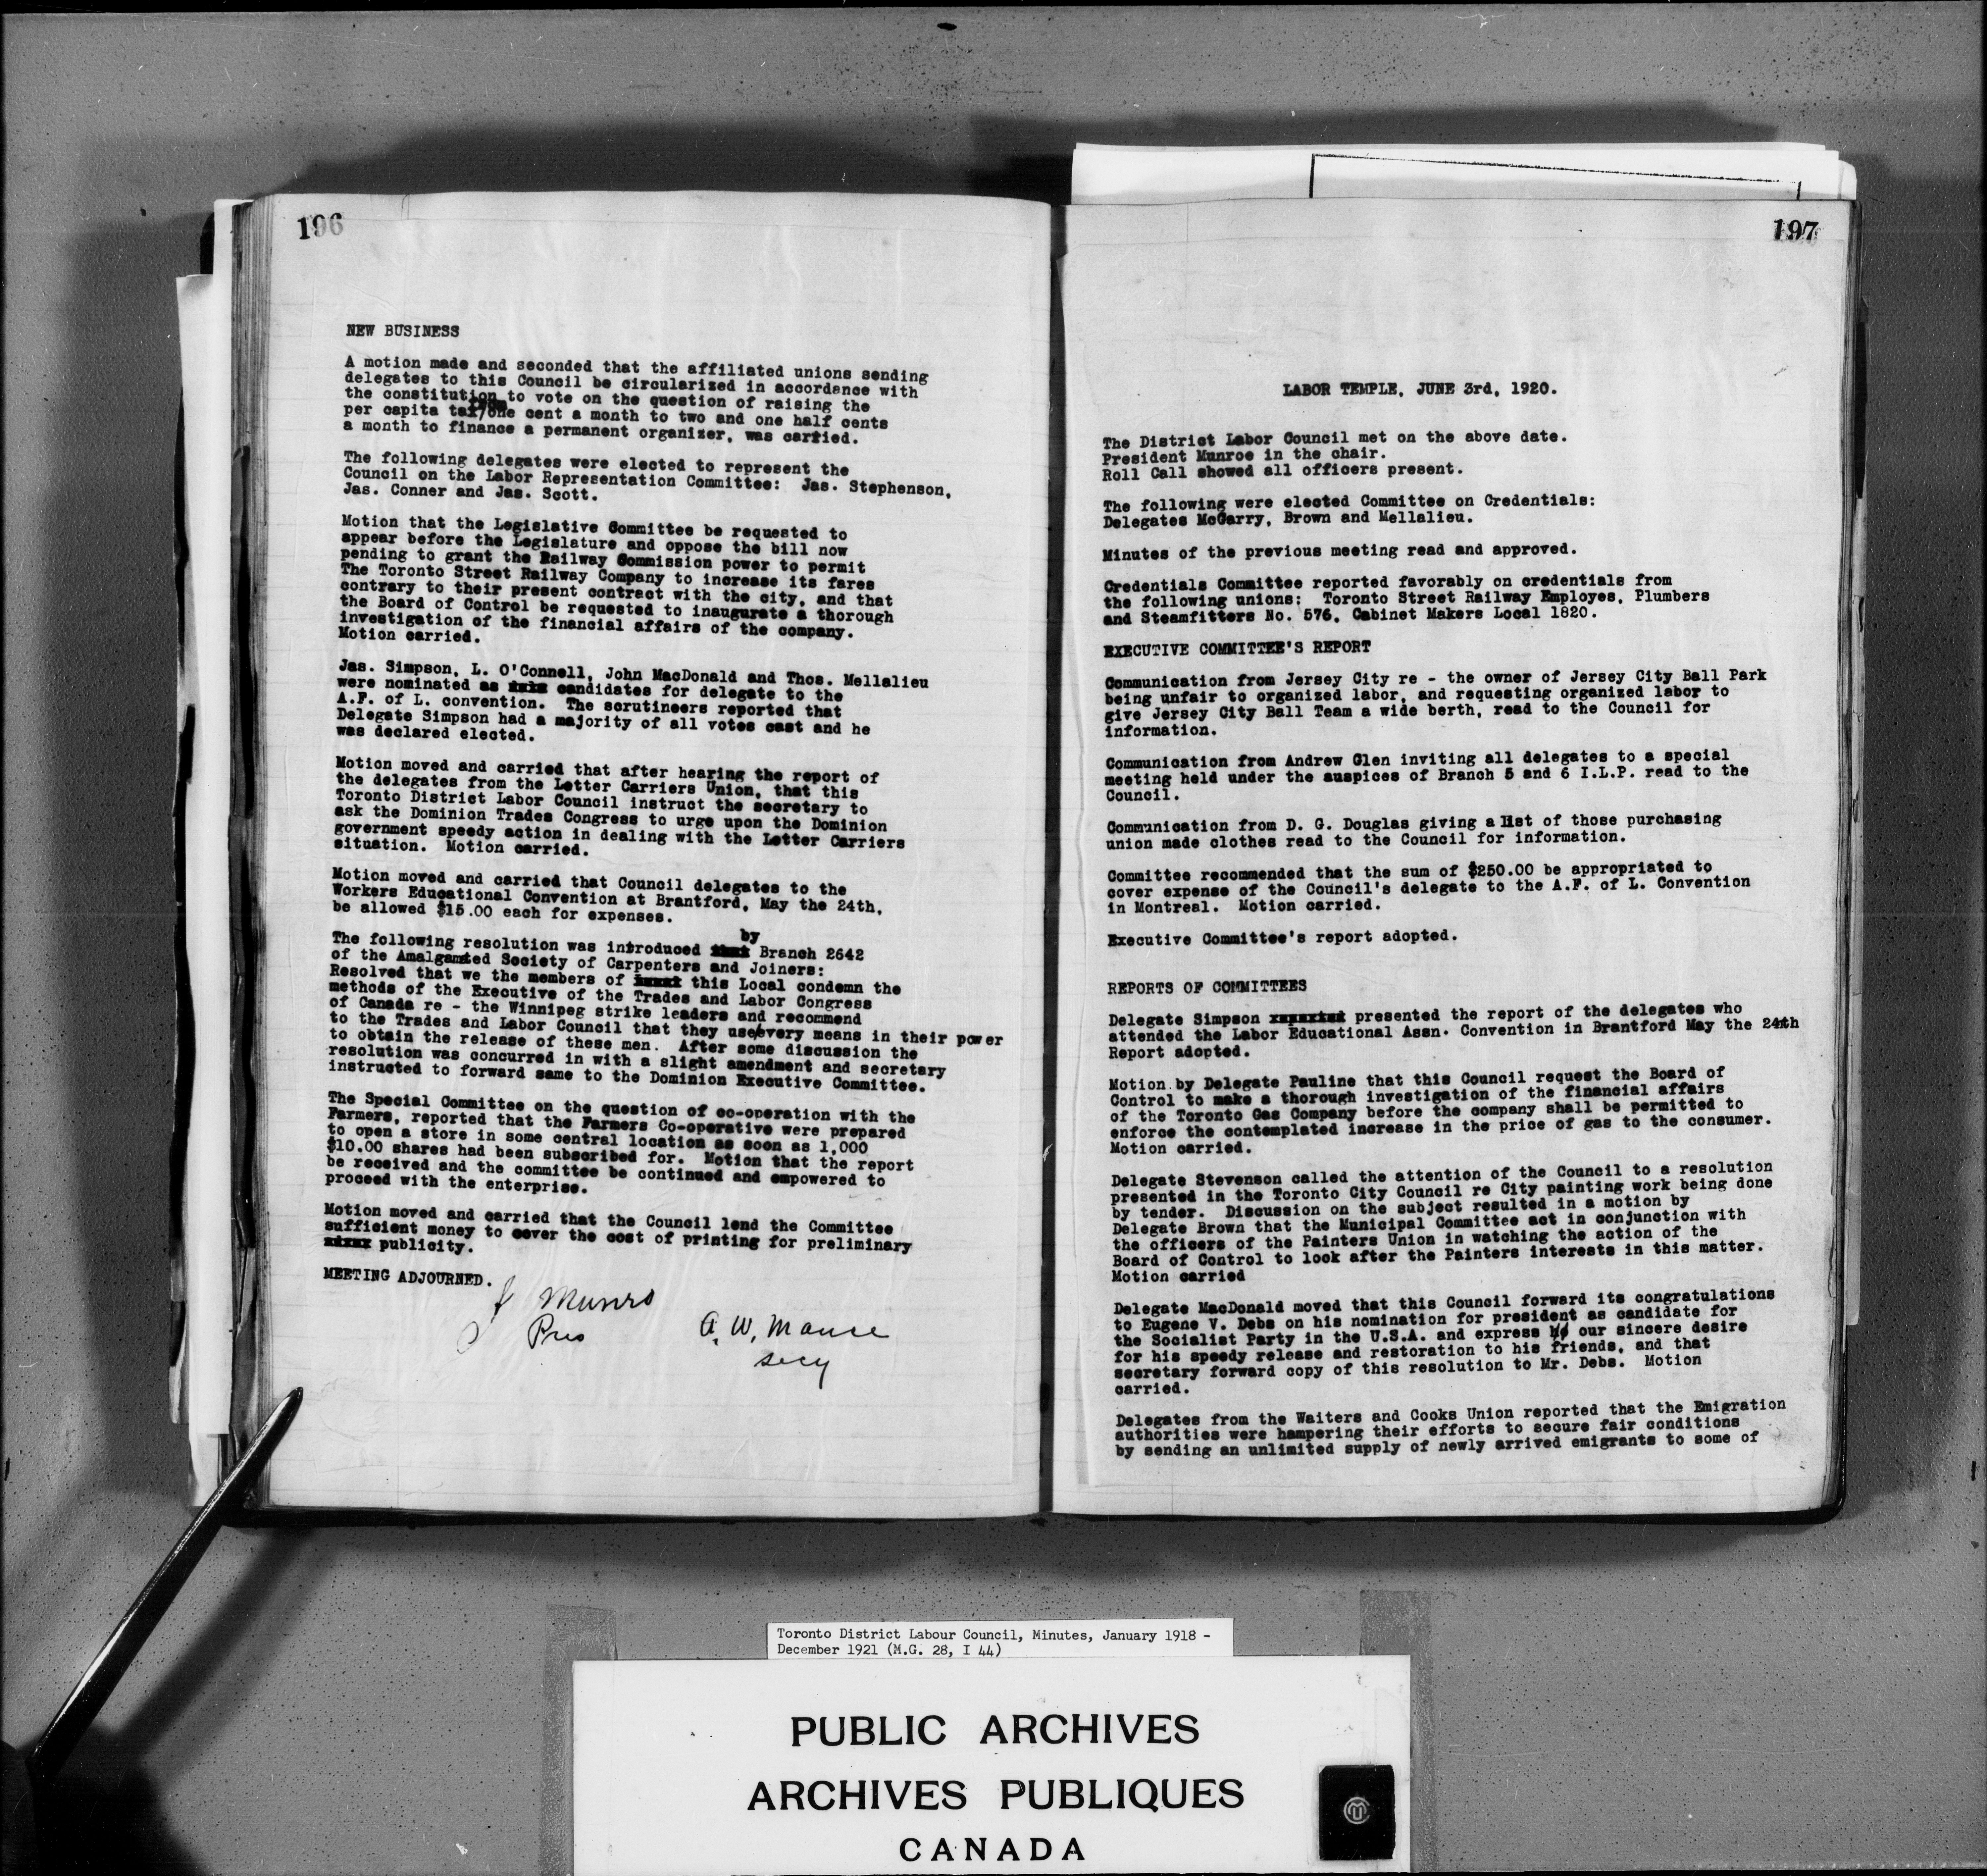 196
NEW BUSINESS
A motion made and seconded that the affiliated unions sending
delegates to this Council be circularized in accordance with
the constitution to vote on the question of raising the
per capita tax/from one cent a month to two and one half cents
a month to finance a permanent organizer, was carried.
The following delegates were elected to represent the
Council on the Labor Representation Committee: Jas. Stephenson,
Jas. Conner and Jas. Scott.
Motion that the Legislative Committee be requested to
appear before the Legislature and oppose the bill now
pending to grant the Railway Commission power to permit
The Toronto Street Railway Company to increase its fares
contrary to their present contract with the city, and that
the Board of Control be requested to inaugurate a thorough
investigation of the financial affairs of the company.
Motion carried.
Jas. Simpson, L. O'Connell, John MacDonald and Thos. Mellalieu
were nominated as candidates for delegate to the
A.F. of L. convention. The scrutineers reported that
Delegate Simpson had a majority of all votes cast and he
was declared elected.
Motion moved and carried that after hearing the report of
the delegates from the Letter Carriers Union, that this
Toronto District Labor Council instruct the secretary to
ask the Dominion Trades Congress to urge upon the Dominion
government speedy action in dealing with the Letter Carriers
situation. Motion carried.
Motion moved and carried that Council delegates to the
Workers Educational Convention at Brantford, May the 24th,
be allowed $15.00 each for expenses.
The following resolution was introduced by Branch 2642
of the Amalgamted Society of Carpenters and Joiners:
Resolved that we the members of this Local condemn the
methods of the Executive of the Trades and Labor Congress
of Canada re - the Winnipeg strike leaders and recommend
to the Trades and Labor Council that they use/every means in their power
to obtain the release of these men. After some discussion the
resolution was concurred in with a slight amendment and secretary
instructed to forward same to the Dominion Executive Committee.
The Special Committee on the question of co-operation with the
Farmers, reported that the Farmers Co-operative were prepared
to open a store in some central location as soon as 1,000
$10.00 shares had been subscribed for. Motion that the report
be received and the committee be continued and empowered to
proceed with the enterprise.
Motion moved and carried that the Council lend the Committee
sufficient money to cover the cost of printing for preliminary
publicity.
MEETING ADJOURNED.
J Munro
Pres
A. W. Mance
secy
197
LABOR TEMPLE, JUNE 3rd, 1920.
The District Labor Council met on the above date.
President Munroe in the chair.
Roll Call showed all officers present.
The following were elected Committee on Credentials:
Delegates McGarry, Brown and Mellalieu.
Minutes of the previous meeting read and approved.
Credentials Committee reported favorably on credentials from
the following unions: Toronto Street Railway Employes, Plumbers
and Steamfitters No. 576, Cabinet Makers Local 1820.
EXECUTIVE COMMITTEE'S REPORT
Communication from Jersey City re - the owner of Jersey City Ball Park
being unfair to organized labor, and requesting organized labor to
give Jersey City Ball Team a wide berth, read to the Council for
information.
Communication from Andrew Glen inviting all delegates to a special
meeting held under the auspices of Branch 5 and 6 I.L.P. read to the
Council.
Communication from D. G. Douglas giving a list of those purchasing
union made clothes read to the Council for information.
Committee recommended that the sum of $250.00 be appropriated to
cover expense of the Council's delegate to the A.F. of L. Convention
in Montreal. Motion carried.
Executive Committee's report adopted.
REPORTS OF COMMITTEES
Delegate Simpson presented the report of the delegates who
attended the Labor Educational Assn. Convention in Brantford May the 24th
Report adopted.
Motion by Delegate Pauline that this Council request the Board of
Control to make a thorough investigation of the financial affairs
of the Toronto Gas Company before the company shall be permitted to
enforce the contemplated increase in the price of gas to the consumer.
Motion carried.
Delegate Stevenson called the attention of the Council to a resolution
presented in the Toronto City Council re City painting work being done
by tender. Discussion on the subject resulted in a motion by
Delegate Brown that the Municipal Committee act in conjunction with
the officers of the Painters Union in watching the action of the
Board of Control to look after the Painters interests in this matter.
Motion carried
Delegate MacDonald moved that this Council forward its congratulations
to Eugene V. Debs on his nomination for president as candidate for
the Socialist Party in the U.S.A. and express our sincere desire
for his speedy release and restoration to his friends, and that
secretary forward copy of this resolution to Mr. Debs. Motion
carried.
Delegates from the Waiters and Cooks Union reported that the Emigration
authorities were hampering their efforts to secure fair conditions
by sending an unlimited supply of newly arrived emigrants to some of
Toronto District Labour Council, Minutes, January 1918 -
December 1921 (M.G. 28, I 44)
PUBLIC ARCHIVES
ARCHIVES PUBLIQUES
CANADA